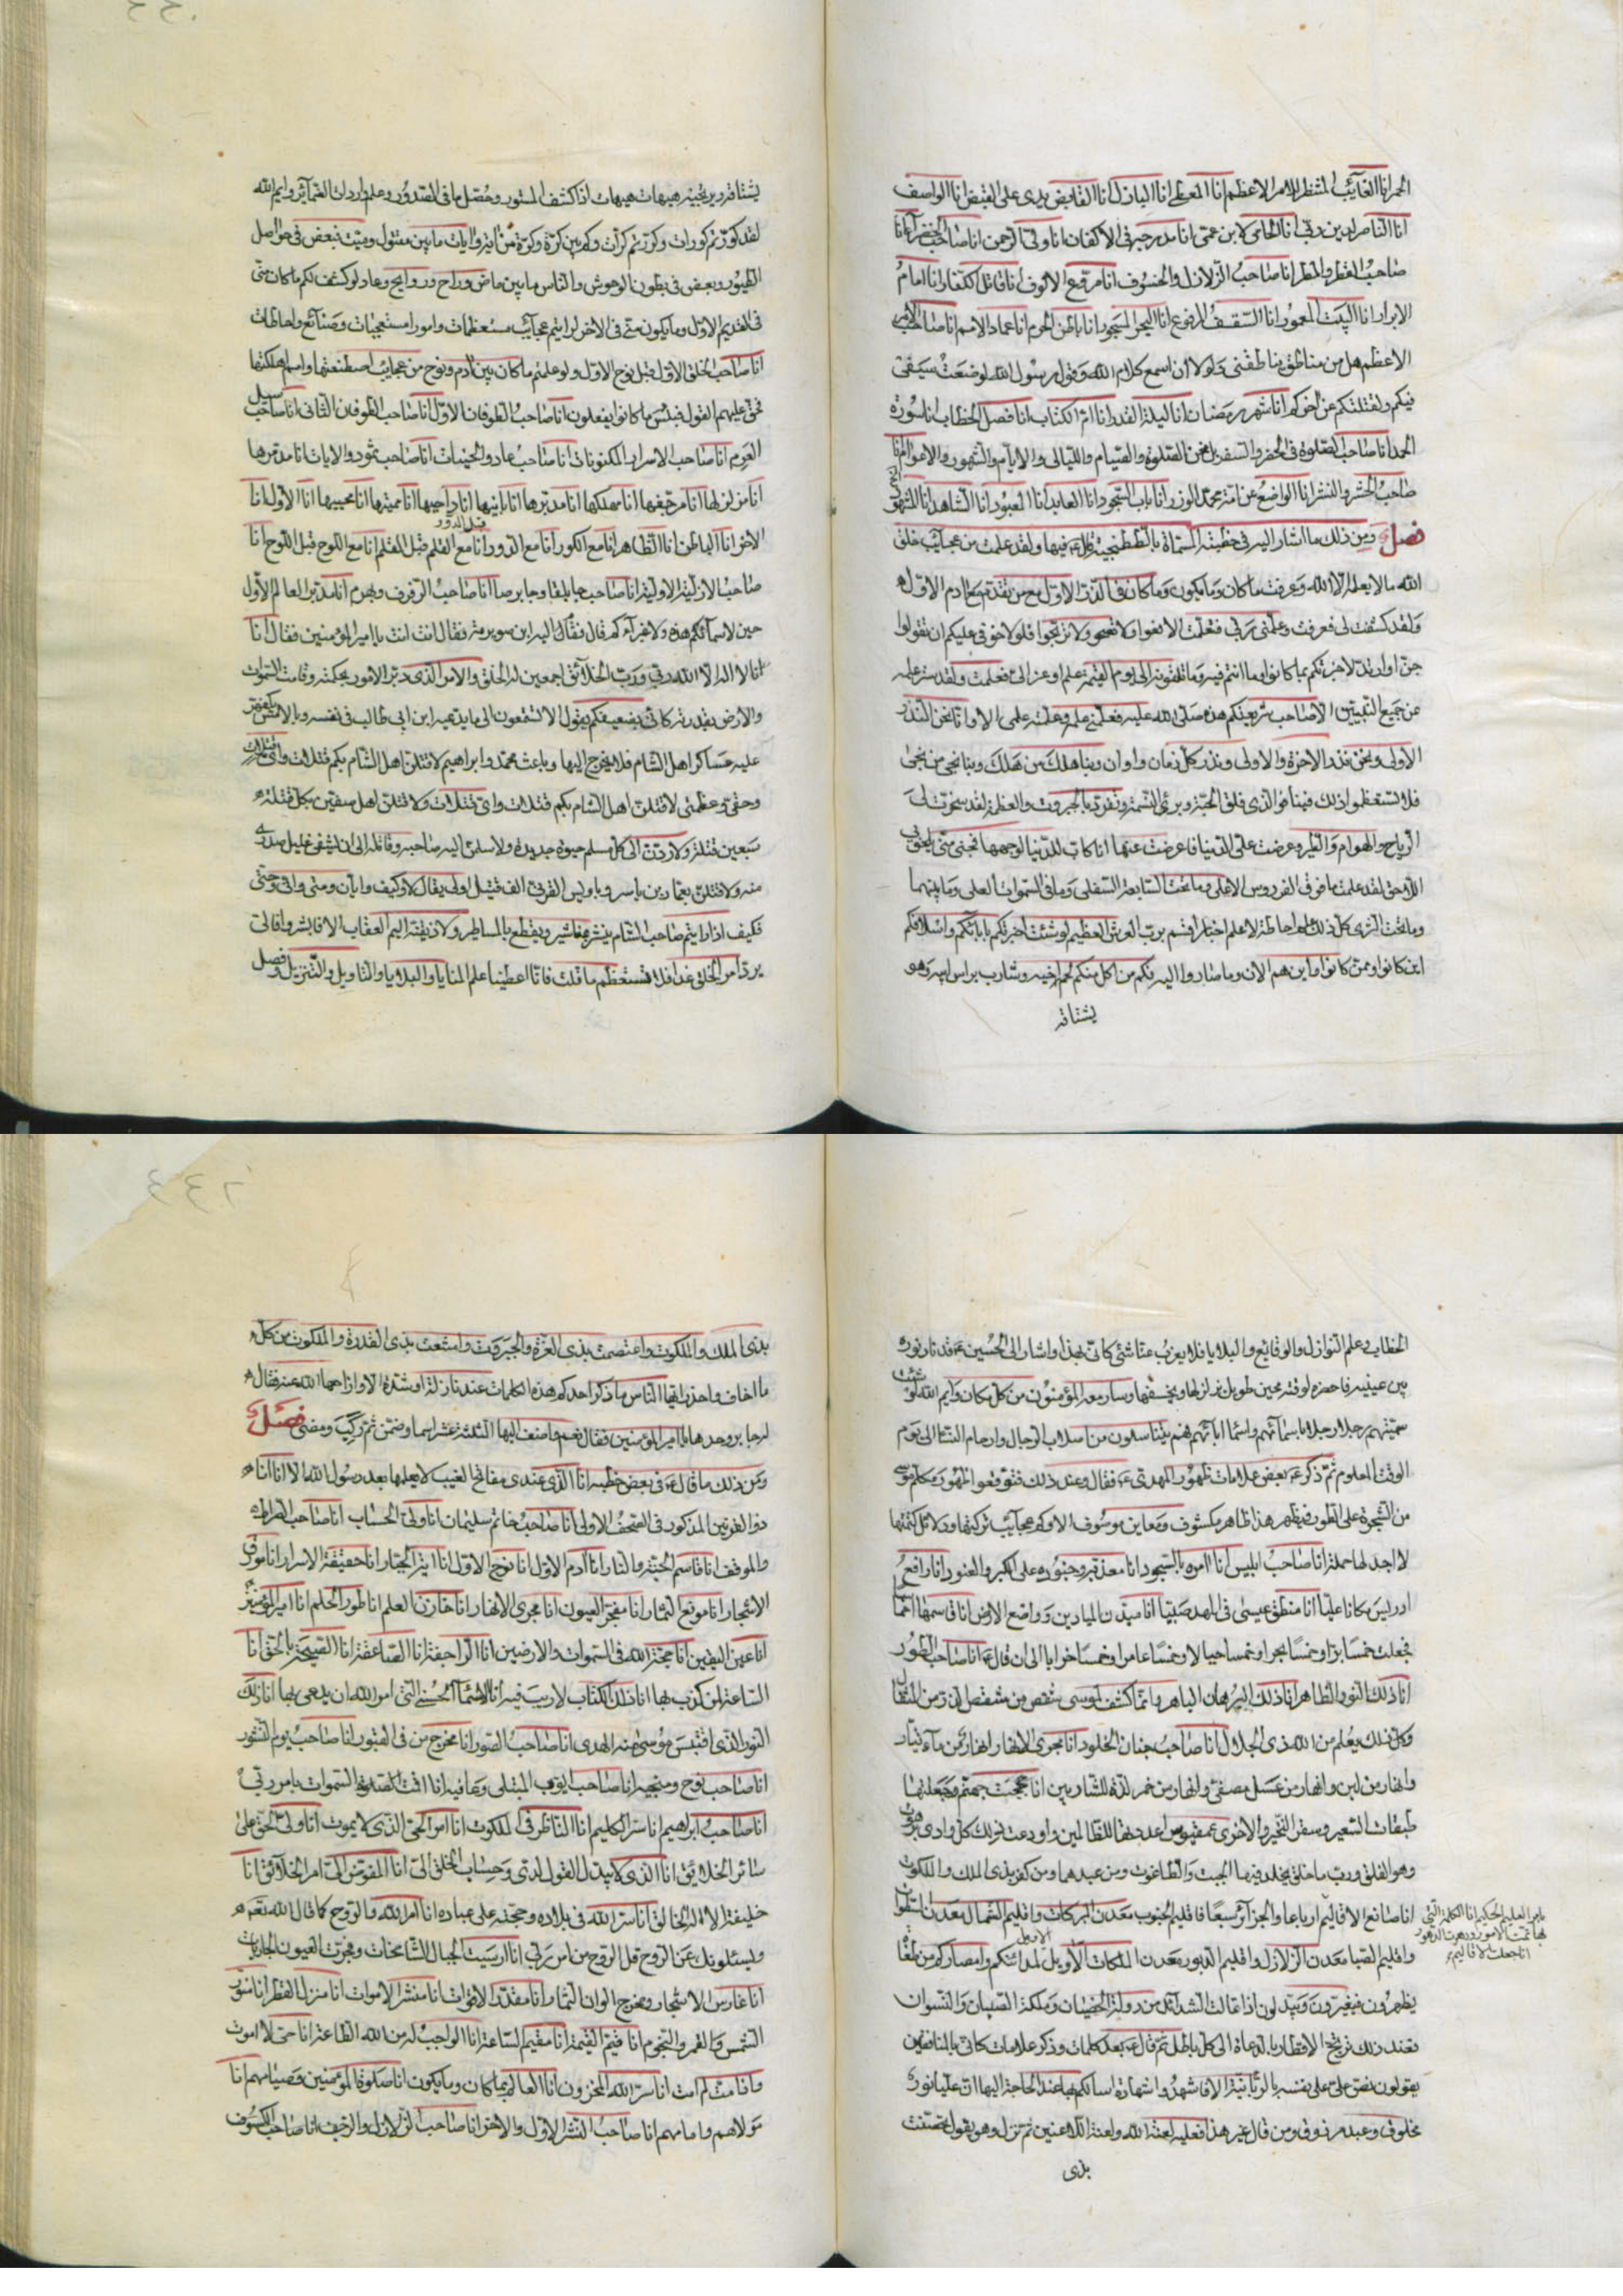 انا الغايب المنتظر للامر الاعظم انا المعطى انا الباذل انا القابض يدى على القبض انا الواصف
انا الناصر لدين ربى انا الحامى لابن عمى انا مدرجه فى الاكفان انا ولى الرحمن انا صاحب الخضر
صاحب القطر والمطر انا صاحب الزلازل والخسوف انا مروع الالوف انا قاتل الكفار انا امام
الابرار انا البيت المعمور انا السقف المرفوع انا البحر المسجور انا باطن الحرم انا عماد الامم انا صاحب الامر
الاعظم هل من مناطق يناطقنى ولولا ان اسمع كلام الله وقول رسول الله لوضعت سيفى
فيكم ولقتلتكم عن اخركم انا شهر رمضان انا ليلة القدر انا ام الكتاب انا فصل الخطاب انا سورة
الحمد انا صاحب الصلوة فى الحضر والسفر بل نحن الصلوة والصيام والليالى والايام والشهور والاعوام انا
صاحب الحشر والنشر انا الواضع عن امة محمد الوزر انا باب السجود انا العابد انا المعبود انا الشاهد انا المشهود
فصل ومن ذلك ما اشار اليه فى خطبته المسماة بالتطنجية قال فيها ولقد علمت من عجايب خلق
الله ما لا يعلمه الا الله وعرفت ما كان وما يكون وما كان فى الذر الاول مع من تقدم مع ادم الاول
ولقد كشف لى فعرفت وعلمنى ربى فتعلمت الا فعوا ولا تضجوا ولا ترتجوا فلولا خوفى عليكم ان تقولوا
جن او ارتد لاخبرتكم بما كانوا وما انتم فيه وما تلقونه الى يوم القيمة علم اوعز الى فعلمت ولقد ستر علمه
عن جميع النبيين الا صاحب شريعتكم هذه صلى الله عليه فعلمنى علمه وعلمته علمى الا وانا نحن النذر
الاولى ونحن نذر الاخرة والاولى ونذر كل زمان واوان وبنا هلك من هلك وبنا نجى من نجى
فلا تستعظموا ذلك فينا فوالذى فلق الحبة وبرئ النسمة وتفرد بالجبروت والعظمة لقد سخرت لى
الرياح والهوام والطير وعرضت على الدنيا فاعرضت عنها انا كاب الدنيا لوجهها فحتى متى يلحق بى
اللاحق لقد علمت ما فوق الفردوس الاعلى وما تحت السابعة السفلى وما فى السموات العلى وما بينهما
وما تحت الثرى كل ذلك علم احاطة لا علم اخبار اقسم برب العرش العظيم لو شئت اخبرتكم بابائكم واسلافكم
اين كانوا وممن كانوا واين هم الان وما صاروا اليه فكم من اكل منكم لحم اخيه وشارب براس ابيه وهو
يشتاقه
يشتاقه ويرتجيه هيهات هيهات اذا كشف المستور وحصل ما فى الصدور وعلم واردات الضماير وايم الله
لقد كورتم كورات وكررتم كرات وكم بين كرة وكرة من اية وايات ما بين مقتول وميت فبعض فى حواصل
الطيور وبعض فى بطون الوحوش والناس ما بين ماض وراح وروايح وعاد لو كشف لكم ما كان منى
فى القديم الاول وما يكون منى فى الاخر لرايتم عجايب مستعظمات وامورا مستعجبات وصنائع واحاطات
انا صاحب الخلق الاول قبل نوح الاول ولو علمتم ما كان بين ادم ونوح من عجايب اصطنعتها وامم اهلكتها
فحق عليهم القول فبئس ما كانوا يفعلون انا صاحب الطوفان الاول انا صاحب الطوفان الثانى انا صاحب سيل
العرم انا صاحب الاسرار المكنونات انا صاحب عاد والجنات انا صاحب ثمود والايات انا مدمرها
انا مزلزلها انا مرجفها انا مهلكها انا مدبرها انا بانيها انا داحيها انا مميتها انا محييها انا الاول انا
الاخر انا الباطن انا الظاهر انا مع الكور انا مع الدور قبل الدور انا مع القلم قبل القلم انا مع اللوح قبل اللوح انا
صاحب الازلية الاولية انا صاحب جابلقا وجابرصا انا صاحب الرفرف وبهرم انا مدبر العالم الاول
حين لا سماؤكم هذه ولا غبراؤكم قال فقال اليه ابن صويرمة فقال انت انت يا امير المؤمنين فقال انا
انا لا اله الا الله ربى ورب الخلائق اجمعين له الخلق والامر الذى دبر الامور بحكمته وقامت السموات
والارض بقدرته كانى بضعيفكم يقول الا تسمعون الى ما يدعيه ابن ابى طالب فى نفسه وبالامس تكفهر
عليه عساكر اهل الشام فلا يخرج اليها وباعث محمد وابراهيم لاقتلن اهل الشام بكم قتلات واى قتلات
وحقى وعظمتى لاقتلن اهل الشام بكم قتلات واى قتلات ولاقتلن اهل صفين بكل قتلة
سبعين قتلة ولاردن الى كل مسلم حيوة جديدة ولاسلمن اليه صاحبه وقاتله الى ان يشفى غليل صدرى
منه ولاقتلن بعمار بن ياسر وباويس القرنى الف قتيل اولى يقال لا وكيف واين ومتى وانى وحتى
فكيف اذا رايتم صاحب الشام ينشر بمناشير ويقطع بالمساطير ولاذيقنه اليم العقاب الا فابشروا فالى
يرد امر الخلق غدا فلا تستعظم ما قلت فانا اعطينا علم المنايا والبلايا والتاويل والتنزيل وفصل
الخطاب وعلم النوازل والوقائع والبلايا فلا يعزب عنا شئ كانى بهذا واشار الى الحسين ع قد ثار نوره
بين عينيه فاحضره لوقته بحين طويل يزلزلها ويخسفها وسار معه المؤمنون من كل مكان وايم الله لو شئت
سميتهم رجلا رجلا باسمائهم واسماء ابائهم فهم يتناسلون من اصلاب الرجال وارحام النساء الى يوم
الوقت المعلوم ثم ذكر ع بعض علامات ظهور المهدى ع فقال وعند ذلك فتوقعوا ظهور مكلم موسى
من الشجرة على الطور فيظهر هذا ظاهر مكشوف ومعاين موصوف الا وكم عجايب تركتها ودلائل كتمتها
لا اجد لها حملة انا صاحب ابليس انا امره بالسجود انا معذبه وجنوده على الكبر والغيور انا رافع
ادريس مكانا عليا انا منطق عيسى فى المهد صبيا انا ميدن الميادين وواضع الارض انا قاسمها اخماسا
فجعلت خمسا برا وخمسا بحرا وخمسا جبالا وخمسا عامرا وخمسا خرابا الى ان قال ع انا صاحب الطور
انا ذلك النور الظاهر انا ذلك البرهان الباهر وانما كشف لموسى شقص من شقص الذر من المثقال
وكل ذلك بعلم من الله ذى الجلال انا صاحب جنان الخلود انا مجرى الانهار انهارا من ماء تيار
وانهار من لبن وانهار من عسل مصفى وانهار من خمر لذة للشاربين انا حجبت جهنم وجعلتها
طبقات السعير وسقر النحير والاخرى عمقيوس اعددتها للظالمين واودعت ذلك كل وادى برهوت
وهو الفلق ورب ما خلق يخلد فيها الجبت والطاغوت ومن عبدهما ومن كفر بذى الملك والملكوت
انا صانع الاقاليم ارباعا والجزائر سبعا فاقليم الجنوب معدن البركات واقليم الشمال معدن السطوات
بامر العليم الحكيم انا الكلمة التى
بها تمت الامور ودهرت الدهور
انا جعلت الاقاليم
واقليم الصبا معدن الزلازل واقليم الدبور معدن الهلكات الا ويل لمدائنكم وامصاركم من طغاة
يظهرون فيغيرون ويبدلون اذا تمالت الشدائد من دولة الخصيان وملكة الصبيان والنسوان
فعند ذلك ترتج الاقطار بالدعاة الى كل باطل ثم قال ع بعد كلمات وذكر علامات كانى بالمنافقين
يقولون نص على على نفسه بالربانية الا فاشهدوا شهادة اسالكم بها عند الحاجة اليها ان عليا نور
مخلوق وعبد مرزوق ومن قال غير هذا فعليه لعنة الله ولعنة اللاعنين ثم نزل وهو يقول تحصنت
بذى
بذى الملك والملكوت واعتصمت بذى العزة والجبروت وامتنعت بذى القدرة والملكوت من كل
ما اخاف واحذر ايها الناس ما ذكر احدكم هذه الكلمات عند نازلة او شدة الا وازاحها الله عنه فقال
له جابر وحدها يا امير المؤمنين فقال نعم واضف اليها الثلثة عشر اسما وضمن ثم ركب ومضى فصل
ومن ذلك ما قال ع فى بعض خطبه انا الذى عندى مفاتح الغيب لا يعلمها بعد رسول الله الا انا انا
ذو القرنين المذكور فى الصحف الاولى انا صاحب خاتم سليمان انا ولى الحساب انا صاحب الصراط
والموقف انا قاسم الجنة والنار انا ادم الاول انا نوح الاول انا اية الجبار انا حقيقة الاسرار انا مورق
الاشجار انا مونع الثمار انا مفجر العيون انا مجرى الانهار انا خازن العلم انا طور الحلم انا امير المؤمنين
انا عين اليقين انا حجة الله فى السموات والارضين انا الراجفة انا الصاعقة انا الصيحة بالحق انا
الساعة لمن كذب بها انا ذلك الكتاب لا ريب فيه انا الاسماء الحسنى التى امر الله ان يدعى بها انا ذلك
النور الذى اقتبس موسى منه الهدى انا صاحب الصور انا مخرج من فى القبور انا صاحب يوم النشور
انا صاحب نوح ومنجيه انا صاحب ايوب المبتلى ومعافيه انا اقمت السموات بامر ربى
انا صاحب ابراهيم انا سر الكليم انا الناظر فى الملكوت انا امر الحى الذى لا يموت انا ولى الحق على
سائر الخلايق انا الذى لا يبدل القول لدى وحساب الخلق الى انا المفوض الى امر الخلايق انا
خليفة الاله الخالق انا سر الله فى بلاده وحجته على عباده انا امر الله والروح كما قال الله تعم
ويسئلونك عن الروح قل الروح من امر ربى انا ارسيت الجبال الشامخات وفجرت العيون الجاريات
انا غارس الاشجار ومخرج الوان الثمار انا مقدر الاقوات انا منشر الاموات انا منزل القطر انا منور
الشمس والقمر والنجوم انا قيم القيمة انا مقيم الساعة انا الواجب له من الله الطاعة انا حى لا اموت
واذا مت لم امت انا سر الله المخزون انا العالم بما كان وما يكون انا صلوة المؤمنين وصيامهم انا
مولاهم وامامهم انا صاحب النشر الاول والاخر انا صاحب الزلازل والرجف انا صاحب الكسوف